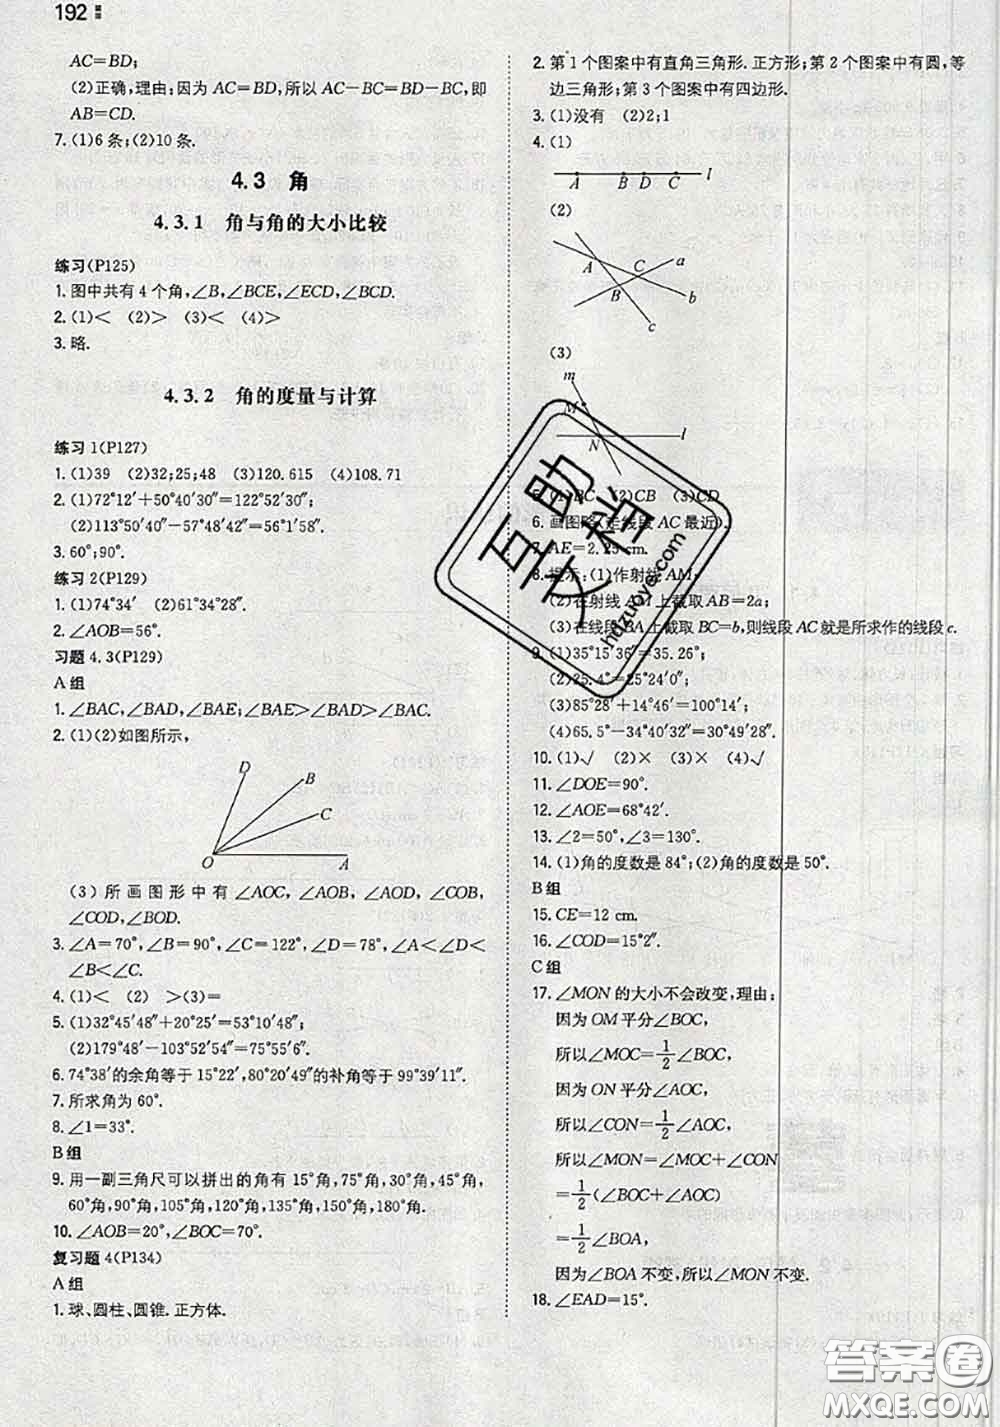 192
AC=BD;
(2)正确,理由;因为 AC=BD,所以 AC−BC=BD−BC,即
AB=CD.
7. (1)6 条;(2)10 条.
4.3 角
4.3.1 角与角的大小比较
练习(P125)
1. 图中共有 4 个角,∠B,∠BCE,∠ECD,∠BCD.
2. (1)< (2)> (3)< (4)>
3. 略.
4.3.2 角的度量与计算
练习 1(P127)
1. (1)39 (2)32;25;48 (3)120.615 (4)108.71
2. (1)72°12′+50°40′30″=122°52′30″;
(2)113°50′40″−57°48′20″=56°2′20″.
3. 60°;90°.
练习 2(P129)
1. (1)74°34′ (2)61°34′28″.
2. ∠AOB=56°.
习题 4.3(P129)
A 组
1. ∠BAC,∠BAD,∠BAE;∠BAE>∠BAD>∠BAC.
2. (1)(2)如图所示,
D
B
C
O A
(3)所画图形中有∠AOC,∠AOB,∠AOD,∠COB,
∠COD,∠BOD.
3. ∠A=70°,∠B=90°,∠C=122°,∠D=78°,∠A<∠D<
∠B<∠C.
4. (1)< (2) >(3)=
5. (1)32°45′48″+20°25′=53°10′48″;
(2)179°48′−103°52′54″=75°55′6″.
6. 74°38′的余角等于 15°22′,80°20′49″的补角等于 99°39′11″.
7. 所求角为 60°.
8. ∠1=33°.
B 组
9. 用一副三角尺可以拼出的角有 15°角,75°角,30°角,45°角,
60°角,90°角,105°角,120°角,135°角,150°角,180°角.
10. ∠AOB=20°,∠BOC=70°.
复习题 4(P134)
A 组
1. 球、圆柱、圆锥. 正方体.
2. 第 1 个图案中有直角三角形. 正方形;第 2 个图案中有圆,等
边三角形;第 3 个图案中有四边形.
3. (1)没有 (2)2;1
4. (1)
A B D C l
(2)
A C a
B b
c
(3)
m
M
N l
5. (1)BC (2)CB (3)CD
6. 画图略(走线段 AC 最近).
7. AE=2.25 cm.
8. 提示:(1)作射线 AM;
(2)在射线 AM 上截取 AB=2a;
(3)在线段 BA 上截取 BC=b,则线段 AC 就是所求作的线段 c.
9. (1)35°15′36″=35.26°;
(2)25.4°=25°24′;
(3)85°28′+14°46′=100°14′;
(4)65.5°−34°40′32″=30°49′28″.
10. (1)√ (2)× (3)× (4)√
11. ∠DOE=90°.
12. ∠AOE=68°42′.
13. ∠2=50°,∠3=130°.
14. (1)角的度数是 84°;(2)角的度数是 50°.
B 组
15. CE=12 cm.
16. ∠COD=15°2″.
C 组
17. ∠MON 的大小不会改变,理由;
因为 OM 平分∠BOC,
所以∠MOC=1/2∠BOC,
因为 ON 平分∠AOC,
所以∠CON=1/2∠AOC,
所以∠MON=∠MOC+∠CON
=1/2(∠BOC+∠AOC)
=1/2∠BOA,
因为∠BOA 不变,所以∠MON 不变.
18. ∠EAD=15°.
互助
文档
hdzuoye.com
答案圈
MXQE.COM